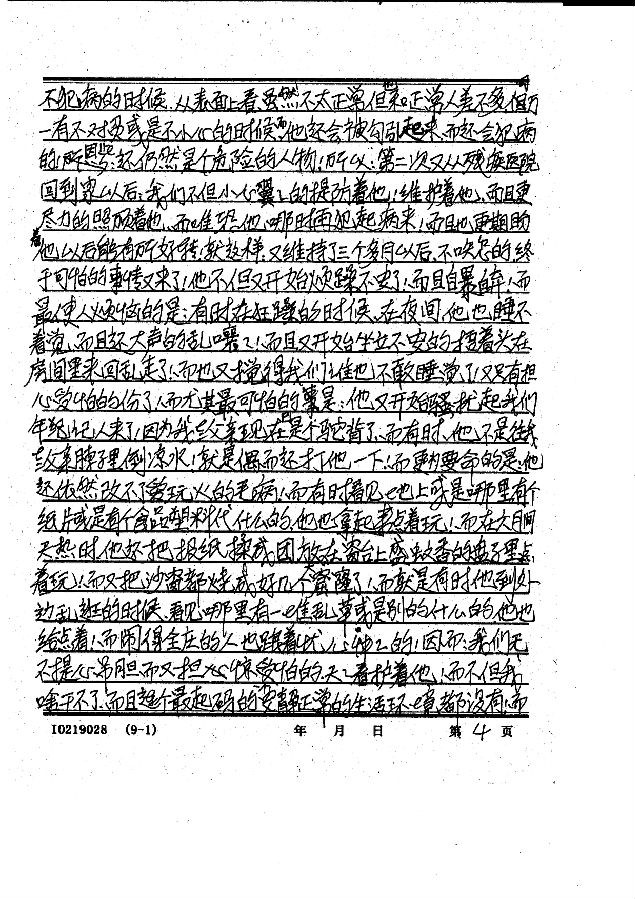 不犯病的时候，从表面上看虽然不太正常但和正常人差不多但万
一有不对劲或是不小心的时候，他还会被勾引起来，而还会犯病
的，所以：还仍然是个危险的人物；所以：第二次又从残疾医院
回到家以后；我们不但小心翼々的提防着他；维护着他，而且更
尽力的照顾着他，而唯恐他哪时再犯起病来！而且也更期盼
着他以后能有所好转，就这样，又维持了三个多月以后，不咋怎的终
于可怕的事情又来了！他不但又开始烦躁不安了！而且自暴自弃！而
最使人烦恼的是：有时在狂躁的时候，在夜间，他也睡不
着觉，而且还大声的乱嚷々！而且又开始坐立不安的抱着头在
房间里来回乱走了！而也又搅得我们谁也不敢睡觉了！又只有担
心受怕的份了！而尤其最可怕的事是：他又开始骚扰起我们
年纪记人来了！因为我父亲现在是个驼背了，而有时，他不是往我
父亲脖子里倒凉水！就是偶而还打他一下！而更为要命的是：他
还依然改不了玩火的毛病！而有时看见地上或是哪里有个
纸片或是有个食品塑料代什么的，他也拿起来点着玩！而在大月间
天热时他还把报纸揉成团放在窗台上盛蚊香的盘子里点
着玩！而又把沙窗都烧成好几个大窟窿了！而就是有时他到处
边乱逛的时候，看见哪里有一堆乱草或是别的什么的，他也
给点着！而闹得全庄的人也跟着忧心忡々的！因而：我们无
不提心吊胆而又担心惊受怕的天々看护着他！而不但我
啥干不了，而且连个最起码的安静正常的生活环境都没有！而
I0219028 (9-1) 年 月 日 第 4 页